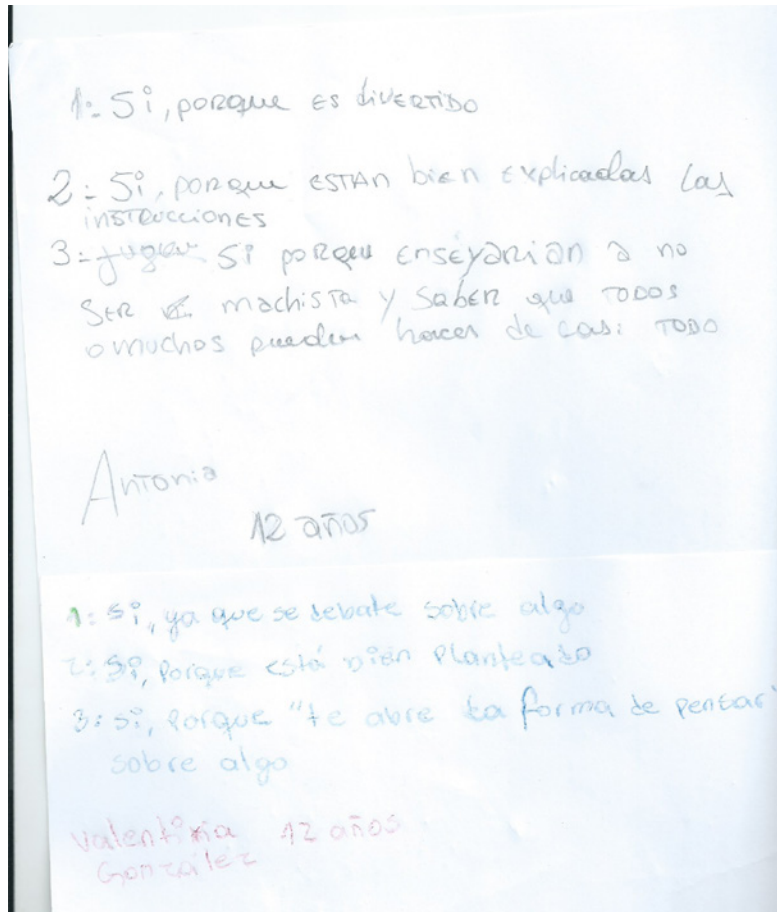 1: Si, porque es divertido
2: Si, porque estan bien explicadas las
instrucciones
3: jugar Si porque enseyarian a no
ser machista y saber que todos
o muchos pueden hacer de casi todo
Antonia
12 años
1: si, ya que se debate sobre algo
2: Si, Porque está bien Planteado
3: si, Porque "te abre la forma de pensar"
sobre algo
Valentina 12 años
González